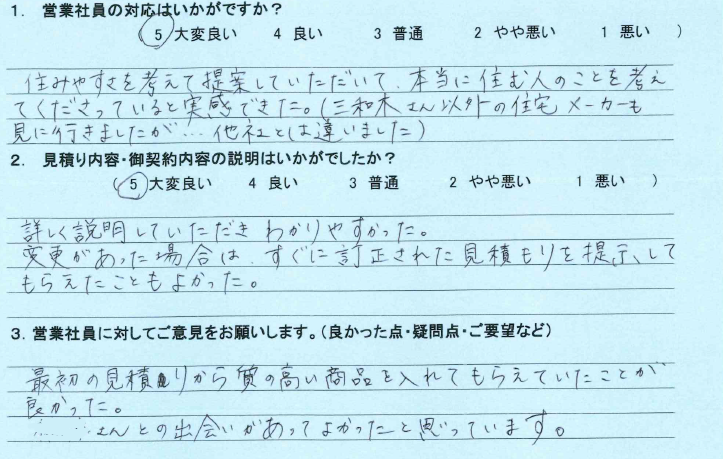 1. 営業社員の対応はいかがですか？
5 大変良い 4 良い 3 普通 2 やや悪い 1 悪い )
住みやすさを考えて提案していただいて、本当に住む人のことを考え
てくださっていると実感できた。(三和木さん以外の住宅メーカーも
見に行きましたが…他社とは違いました)
2. 見積り内容・御契約内容の説明はいかがでしたか？
( 5 大変良い 4 良い 3 普通 2 やや悪い 1 悪い )
詳しく説明していただきわかりやすかった。
変更があった場合は、すぐに訂正された見積もりを提示して
もらえたこともよかった。
3. 営業社員に対してご意見をお願いします。(良かった点・疑問点・ご要望など)
最初の見積りから質の高い商品を入れてもらえていたことが
良かった。
さんとの出会いがあってよかったと思っています。